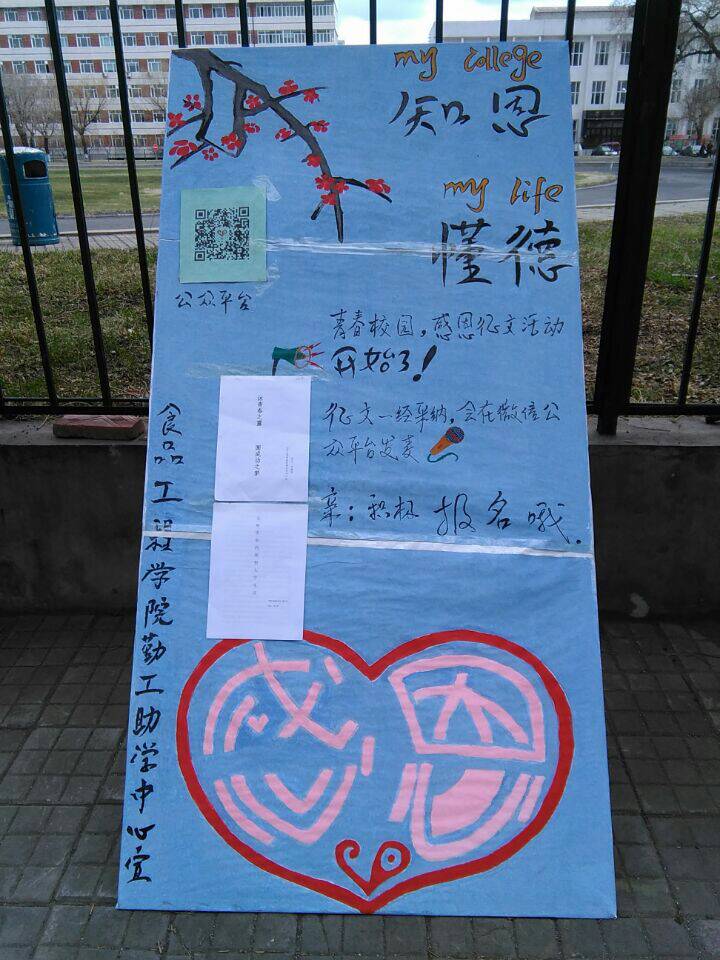 my college
知恩
my life
懂德
公众平台
青春校园，感恩征文活动
开始了！
征文一经采纳，会在微信公
众平台发麦
亲：积极报名哦.
沐青春之露 圆成功之梦
食品工程学院勤工助学中心宣
感恩